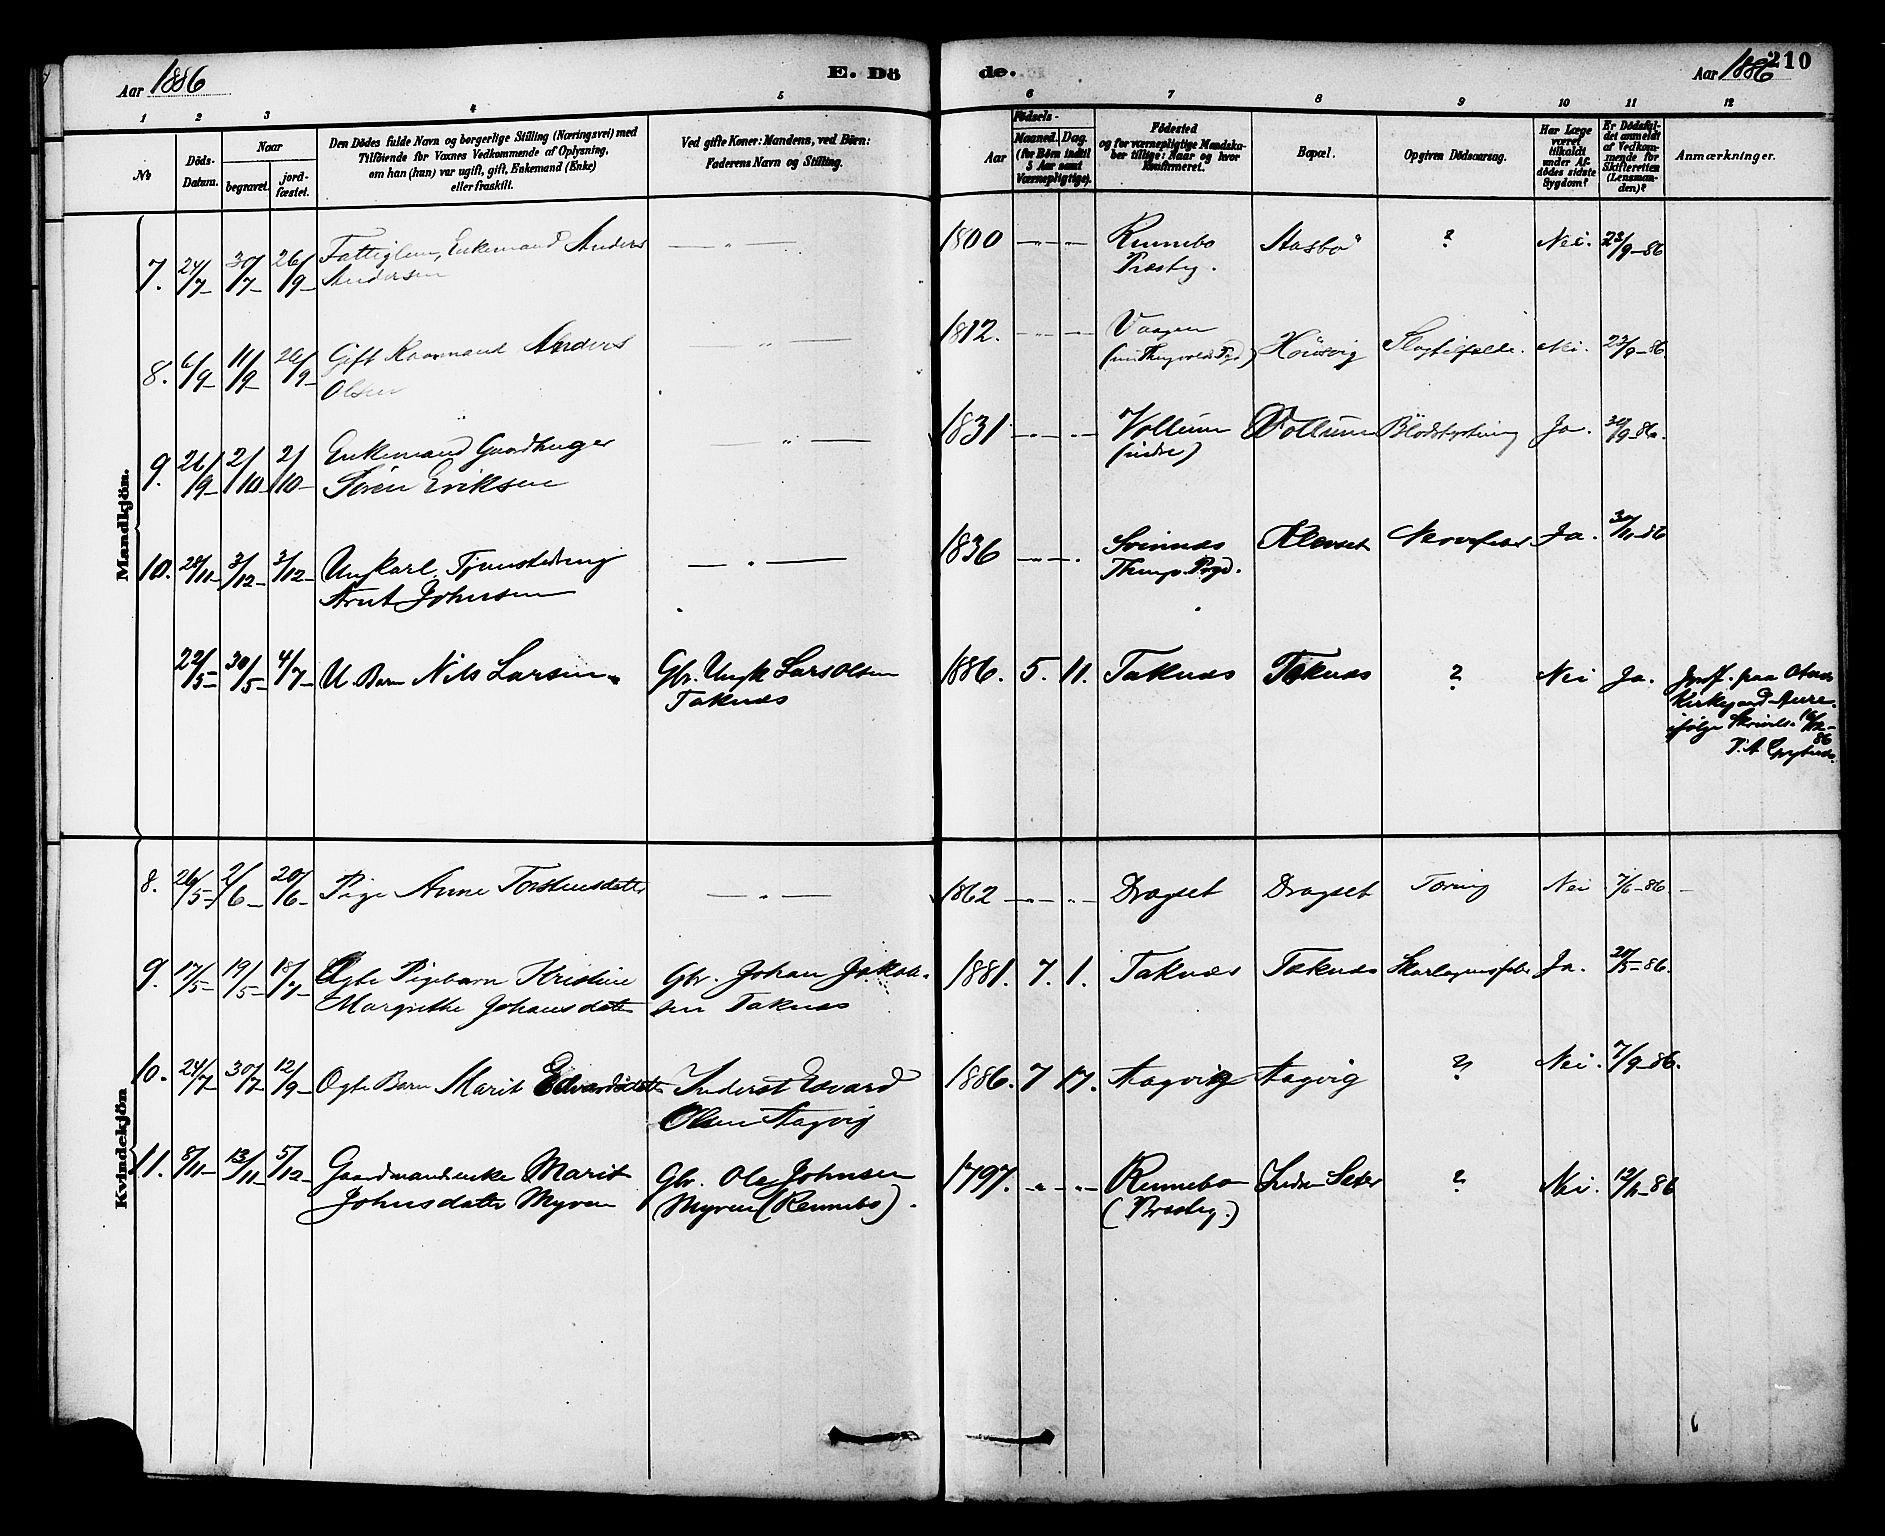 Aar 1886
E. Dö
de.
Aar 1886
210
1 2 3 4 5 6 7 8 9 10 11 12
No
Döds-
Datum.
Naar
begravet.
jord-
fæstet.
Den Dödes fulde Navn og borgerlige Stilling (Næringsvei) med
Tilföiende for Vaxnes Vedkommende af Oplysning,
om han (hun) var ugift, gift, Enkemand (Enke)
eller fraskilt.
Ved gifte Koner: Mandens, ved Börn:
Faderens Navn og Stilling.
Födsels-
Aar
Maaned. Dag.
(for Börn indtil
5 Aar samt
Værnepligtige).
Födested
og for værnepligtige Mandska-
ber tillige: Naar og hvor
Konfirmeret.
Bopæl.
Opgiven Dödsaarsag.
Har Læge
været
tilkaldt
under Af-
dödes sidste
Sygdom?
Er Dödsfal-
det anmeldt
af Vedkom-
mende for
Skifteretten
(Lensman-
den)?
Anmærkninger.
Mandkjön.
7. 24/7 30/7 26/9 Enkemand Anders — " — 1800 — " — Rennebo Aasbö ? Nei. 23/9-86
Andersen Præstg.
8. 6/9 11/9 26/9 Gift Anders — " — 1812. — " — Vaagen Nei. 23/9-86
Olsen
9. 26/9 2/10 2/10 Enkemand — " — 1831 — " — Vollum Vollum Ja. 30/9-86.
Sören Eriksen (indre)
10. 28/11 3/12 3/12 Ungkarl, — " — 1836 — " — Ja. 30/11-86
Arnt Johnsen
22/5 30/5 4/7 U. Barn Nils Larsen Gbr. Ungk Lars Olsen 1886. 5. 11. Taknes Taknes ? Nei Ja.
Taknes
Kirkegaard
ifölge
86
Kvindekjön
8. 26/5 2/6 20/6 Pige Anne Torstensdatter — " — 1862 — " — Dragset Dragset Tæring Nei 7/6-86.
9. 17/5 19/5 18/7 Ægte Pigebarn Kristine Gbr. Johan Jakob- 1881. 7. 1. Taknes Taknes Skarlagensfeber Ja. 20/5-86.
Margrethe Johansdatter sen Taknes
10. 24/7 30/7 12/9 Ægte Barn Marit Edvardsdatter Inderst Edvard 1886. 7 17. Aagvig Aagvig ? Nei. 7/9-86.
Olsen Aagvig
11. 8/11 13/11 5/12 Gaardmandsenke Marit Gbr. Ole Johnsen 1797. — " — Rennebo Indre Sæter ? Nei. 12/11-86
Johnsdatter Myren Myren (Rennebo). (Præstg.)